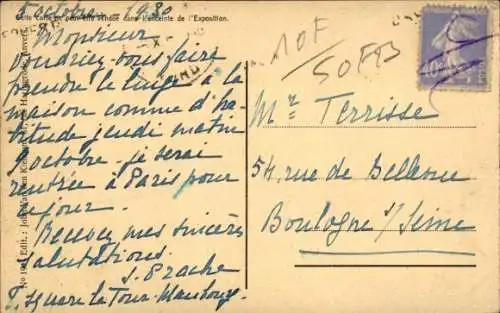 5 octobre 1930
Cette carte ne peut être vendue dans l'enceinte de l'Exposition.
Monsieur
Voudriez-vous faire
prendre le linge à la
maison comme d'ha-
bitude jeudi matin
octobre. je serai
rentrée à Paris pour
ce jour.
Recevez mes sincères
salutations.
S. Prache
square la Tour-Maubourg.
10F
50FB
40c
Mr Terrisse
54, rue de Bellevue
Boulogne s/ Seine